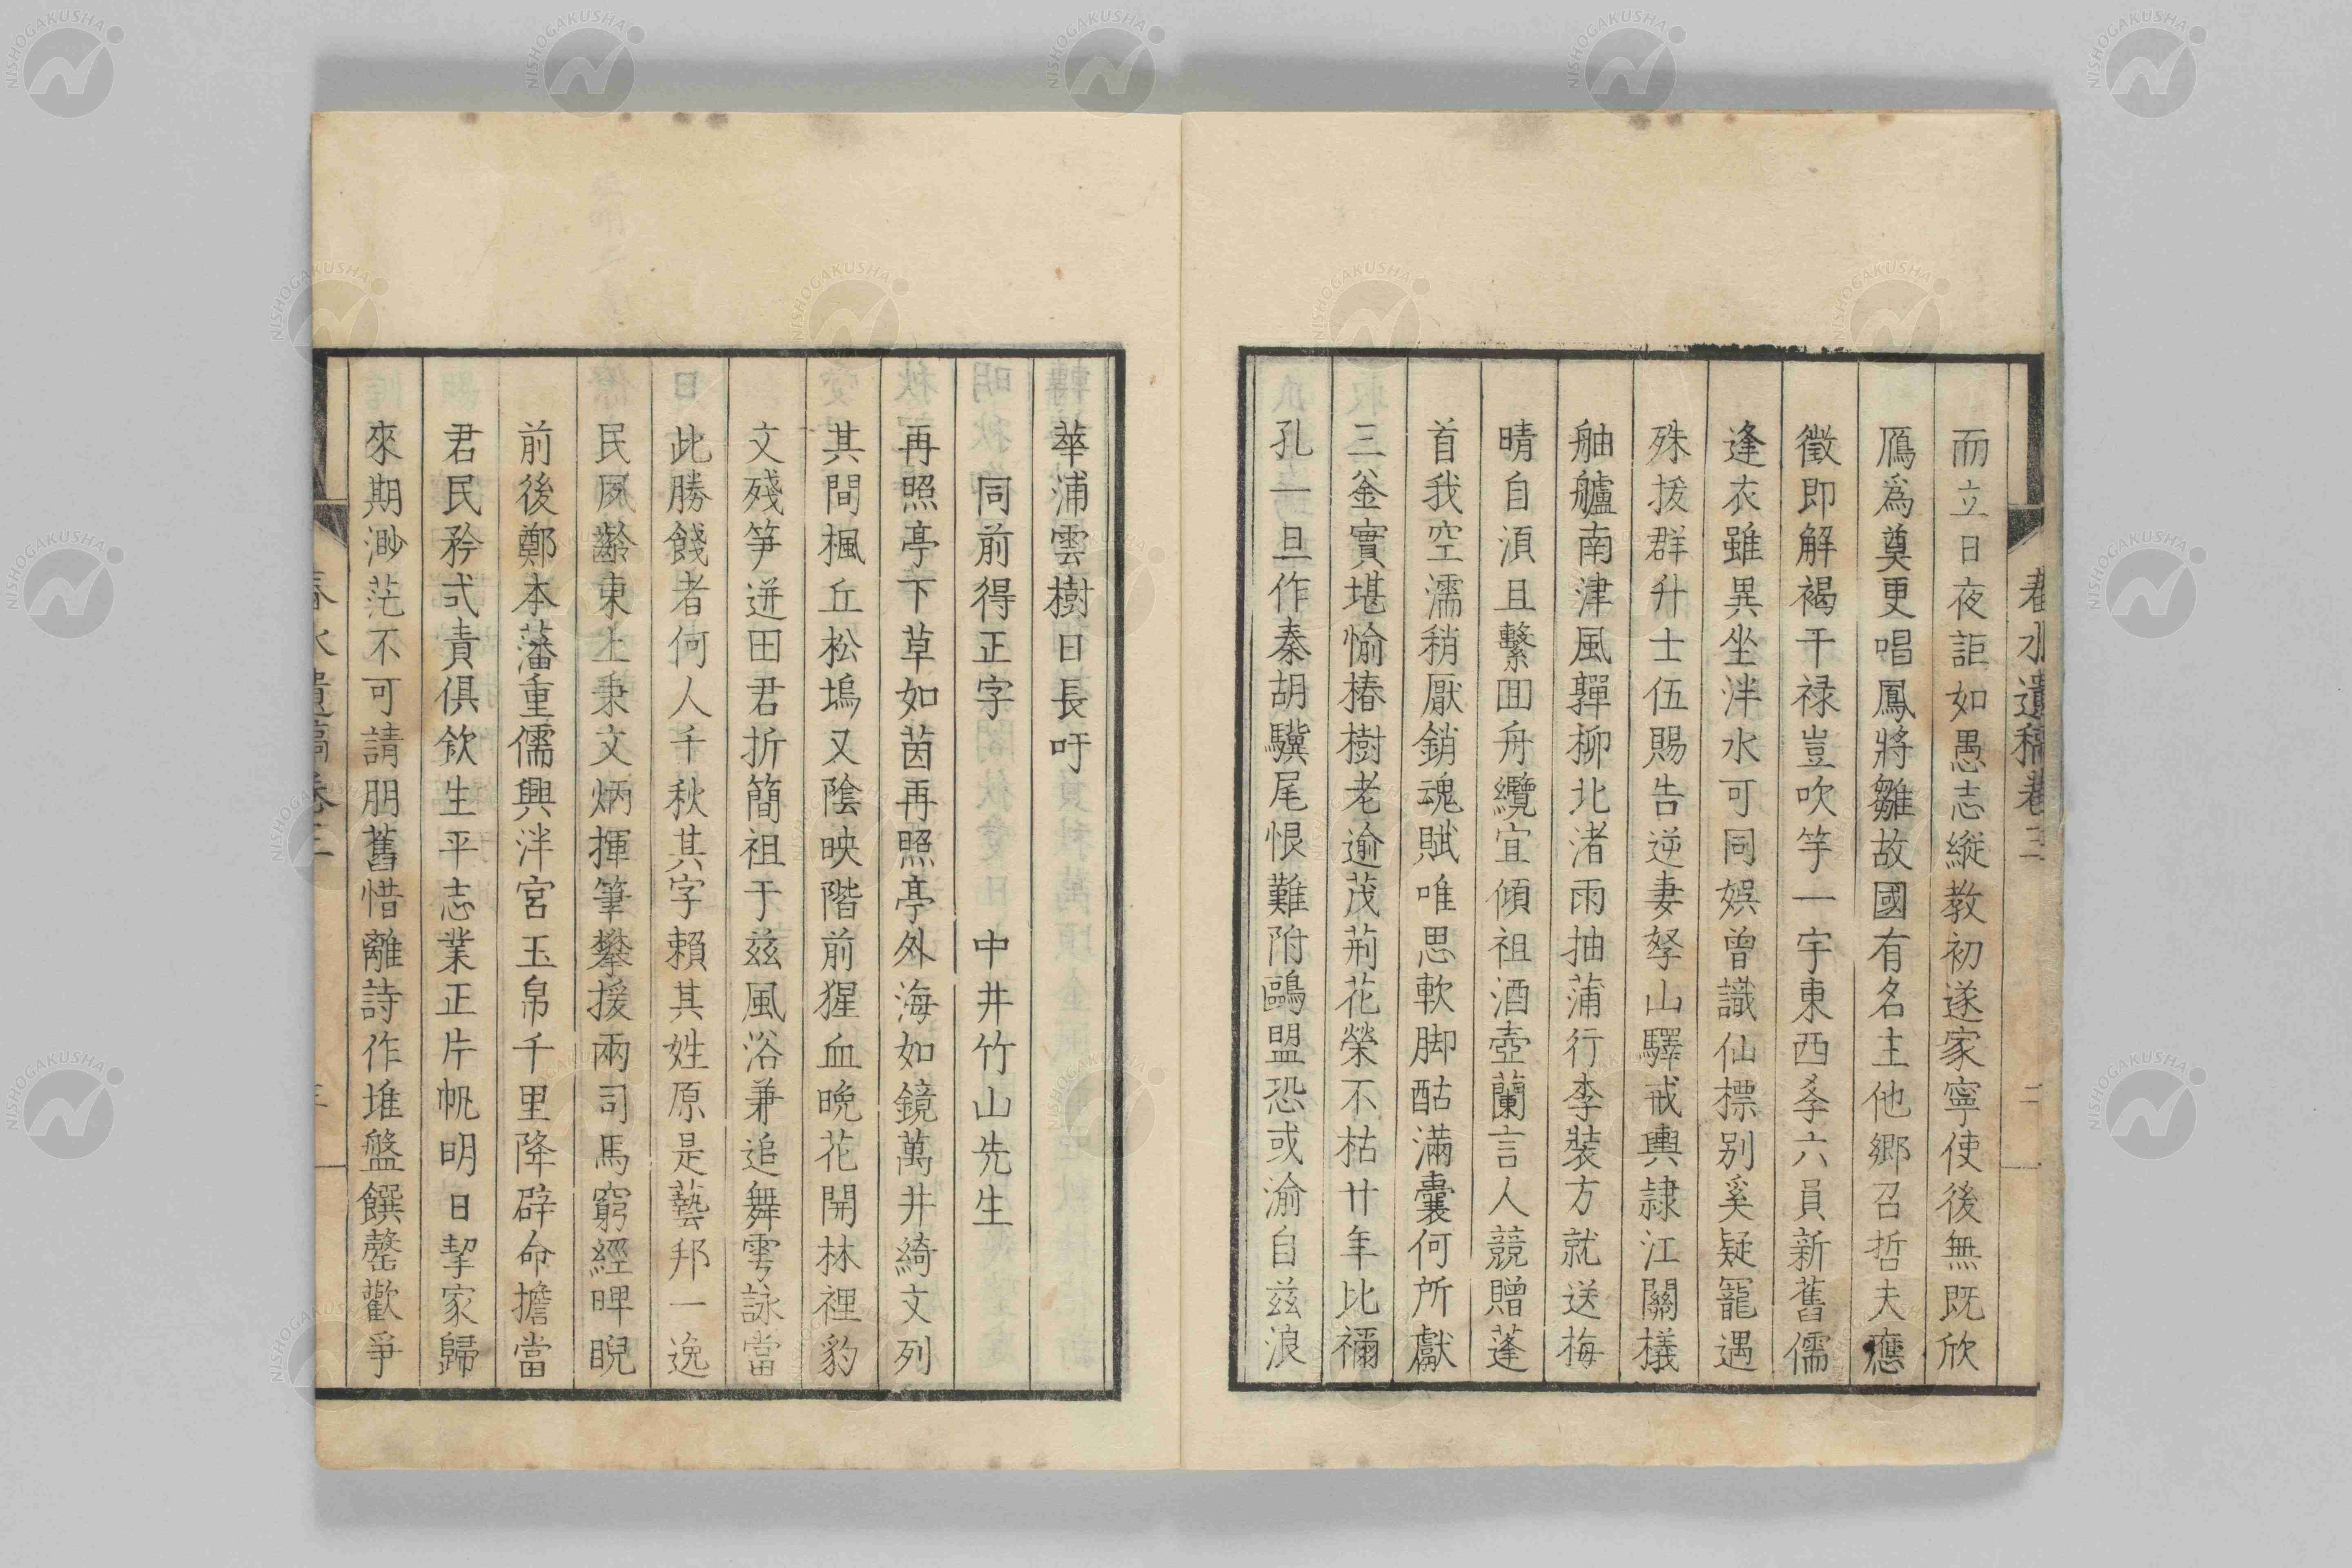 春水遺稿卷三
二
而立日夜詎如愚志縱教初遂家寧使後無既欣
鴈爲奠更唱鳳將雛故國有名主他鄉召哲夫應
徵即解褐干禄豈吹竽一宇東西夆六員新舊儒
逢衣雖異坐泮水可同娯曽識仙標别奚疑寵遇
殊拔群升士伍賜告逆妻孥山驛戒輿隷江關檥
舳艫南津風嚲柳北渚雨抽蒲行李裝方就送梅
晴自湏且繫囬舟纜宜傾祖酒壺蘭言人競贈蓬
首我空濡稍厭銷魂賦唯思軟脚酤滿囊何所獻
三釜實堪愉椿樹老逾茂荊花榮不枯廿年比禰
孔一旦作秦胡驥尾恨難附鷗盟恐或渝自兹浪
華浦雲樹日長吁
同前得正字 中井竹山先生
再照亭下草如茵再照亭外海如鏡萬井綺文列
其間楓丘松塢又陰映階前猩血晩花開林裡豹
文殘笋迸田君折簡祖于兹風浴兼追舞雩詠當
日此勝餞者何人千秋其字賴其姓原是藝邦一逸
民夙齡東上秉文炳揮筆攀援兩司馬窮經睥睨
前後鄭本藩重儒興泮宮玉帛千里降辟命擔當
君民矜式責俱欽生平志業正片帆明日挈家歸
來期渺茫不可請朋舊惜離詩作堆盤饌罄歡爭
春水遺稿卷三
三
NISHOGAKUSHA